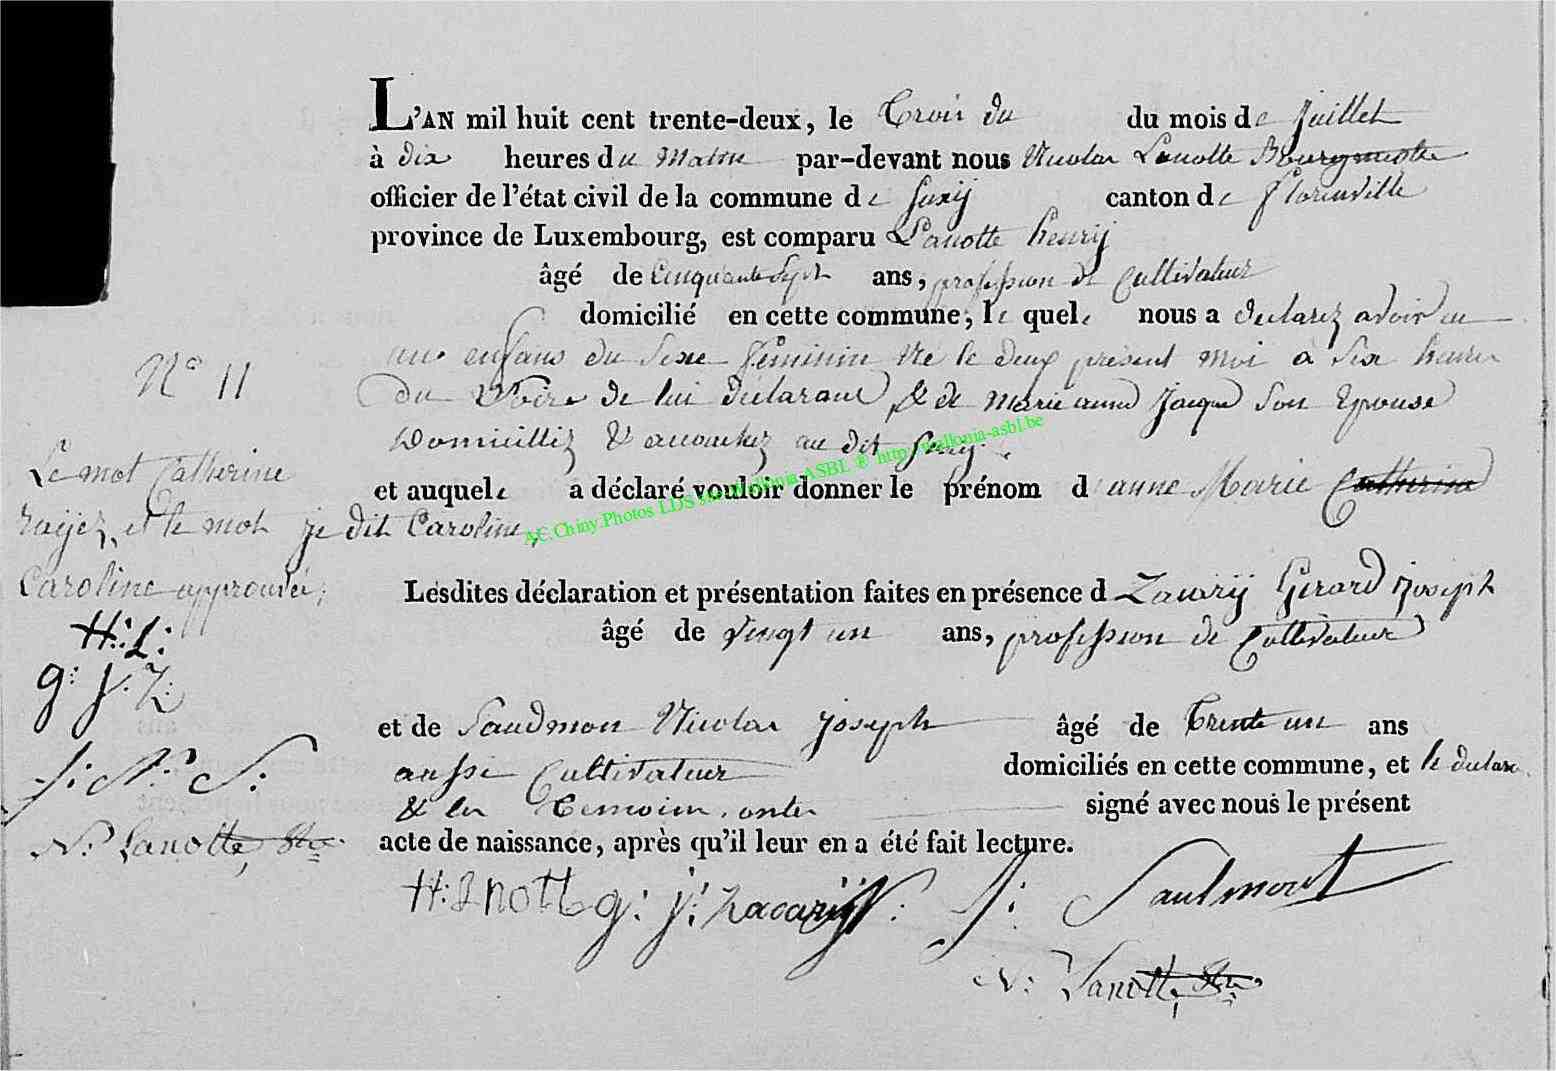 L'AN mil huit cent trente-deux, le Trois du du mois de Juillet
à dix heures du Matin par-devant nous Nicolas Lanotte Bourgmestre
officier de l'état civil de la commune de Suxÿ canton de florenville
province de Luxembourg, est comparu Lanotte henrÿ
âgé de Cinquante Sept ans, profession de Cultivateur
domicilié en cette commune, le quel nous a declarez avoir eu
un enfans du Sexe feminin Né le deux présent moi à Six heures
N° 11
du Soire de lui déclarant & de Marie anne Jacque Son Epouse
Domicilliez & accouchez au dit Suxÿ.
Le mot Catherine
et auquel a déclaré vouloir donner le prénom d anne Marie Catherine
raÿez, et le mot je dit Caroline,
AC.Chiny.Photos LDS sur Wallonia ASBL ® http://wallonia-asbl.be
Caroline approuvée;
Lesdites déclaration et présentation faites en présence d Zacarÿ Gerard Joseph
H: L:
âgé de vingt un ans, profession de Cultivateur
g: j: Z:
et de Saudmon Nicolas Joseph âgé de Trente un ans
J: N: S:
aussi Cultivateur domiciliés en cette commune, et le declarant
& les Temoins ontes signé avec nous le présent
N: Lanotte,
acte de naissance, après qu'il leur en a été fait lecture.
H: Lnotte g: j: Zacarÿ N: J: Saulmont
N: Lanotte,